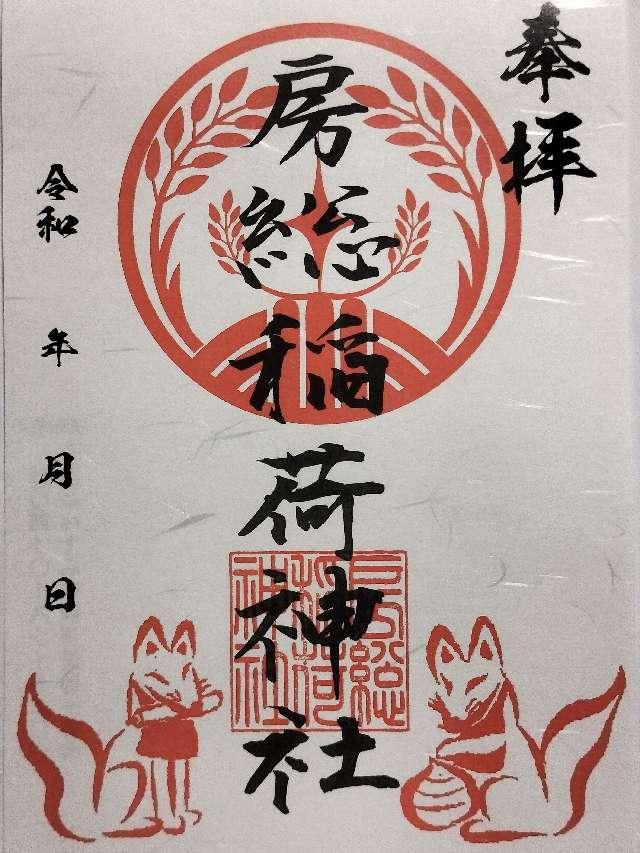 奉拝
房総稲荷神社
房総
稲荷
神社
令和 年 月 日